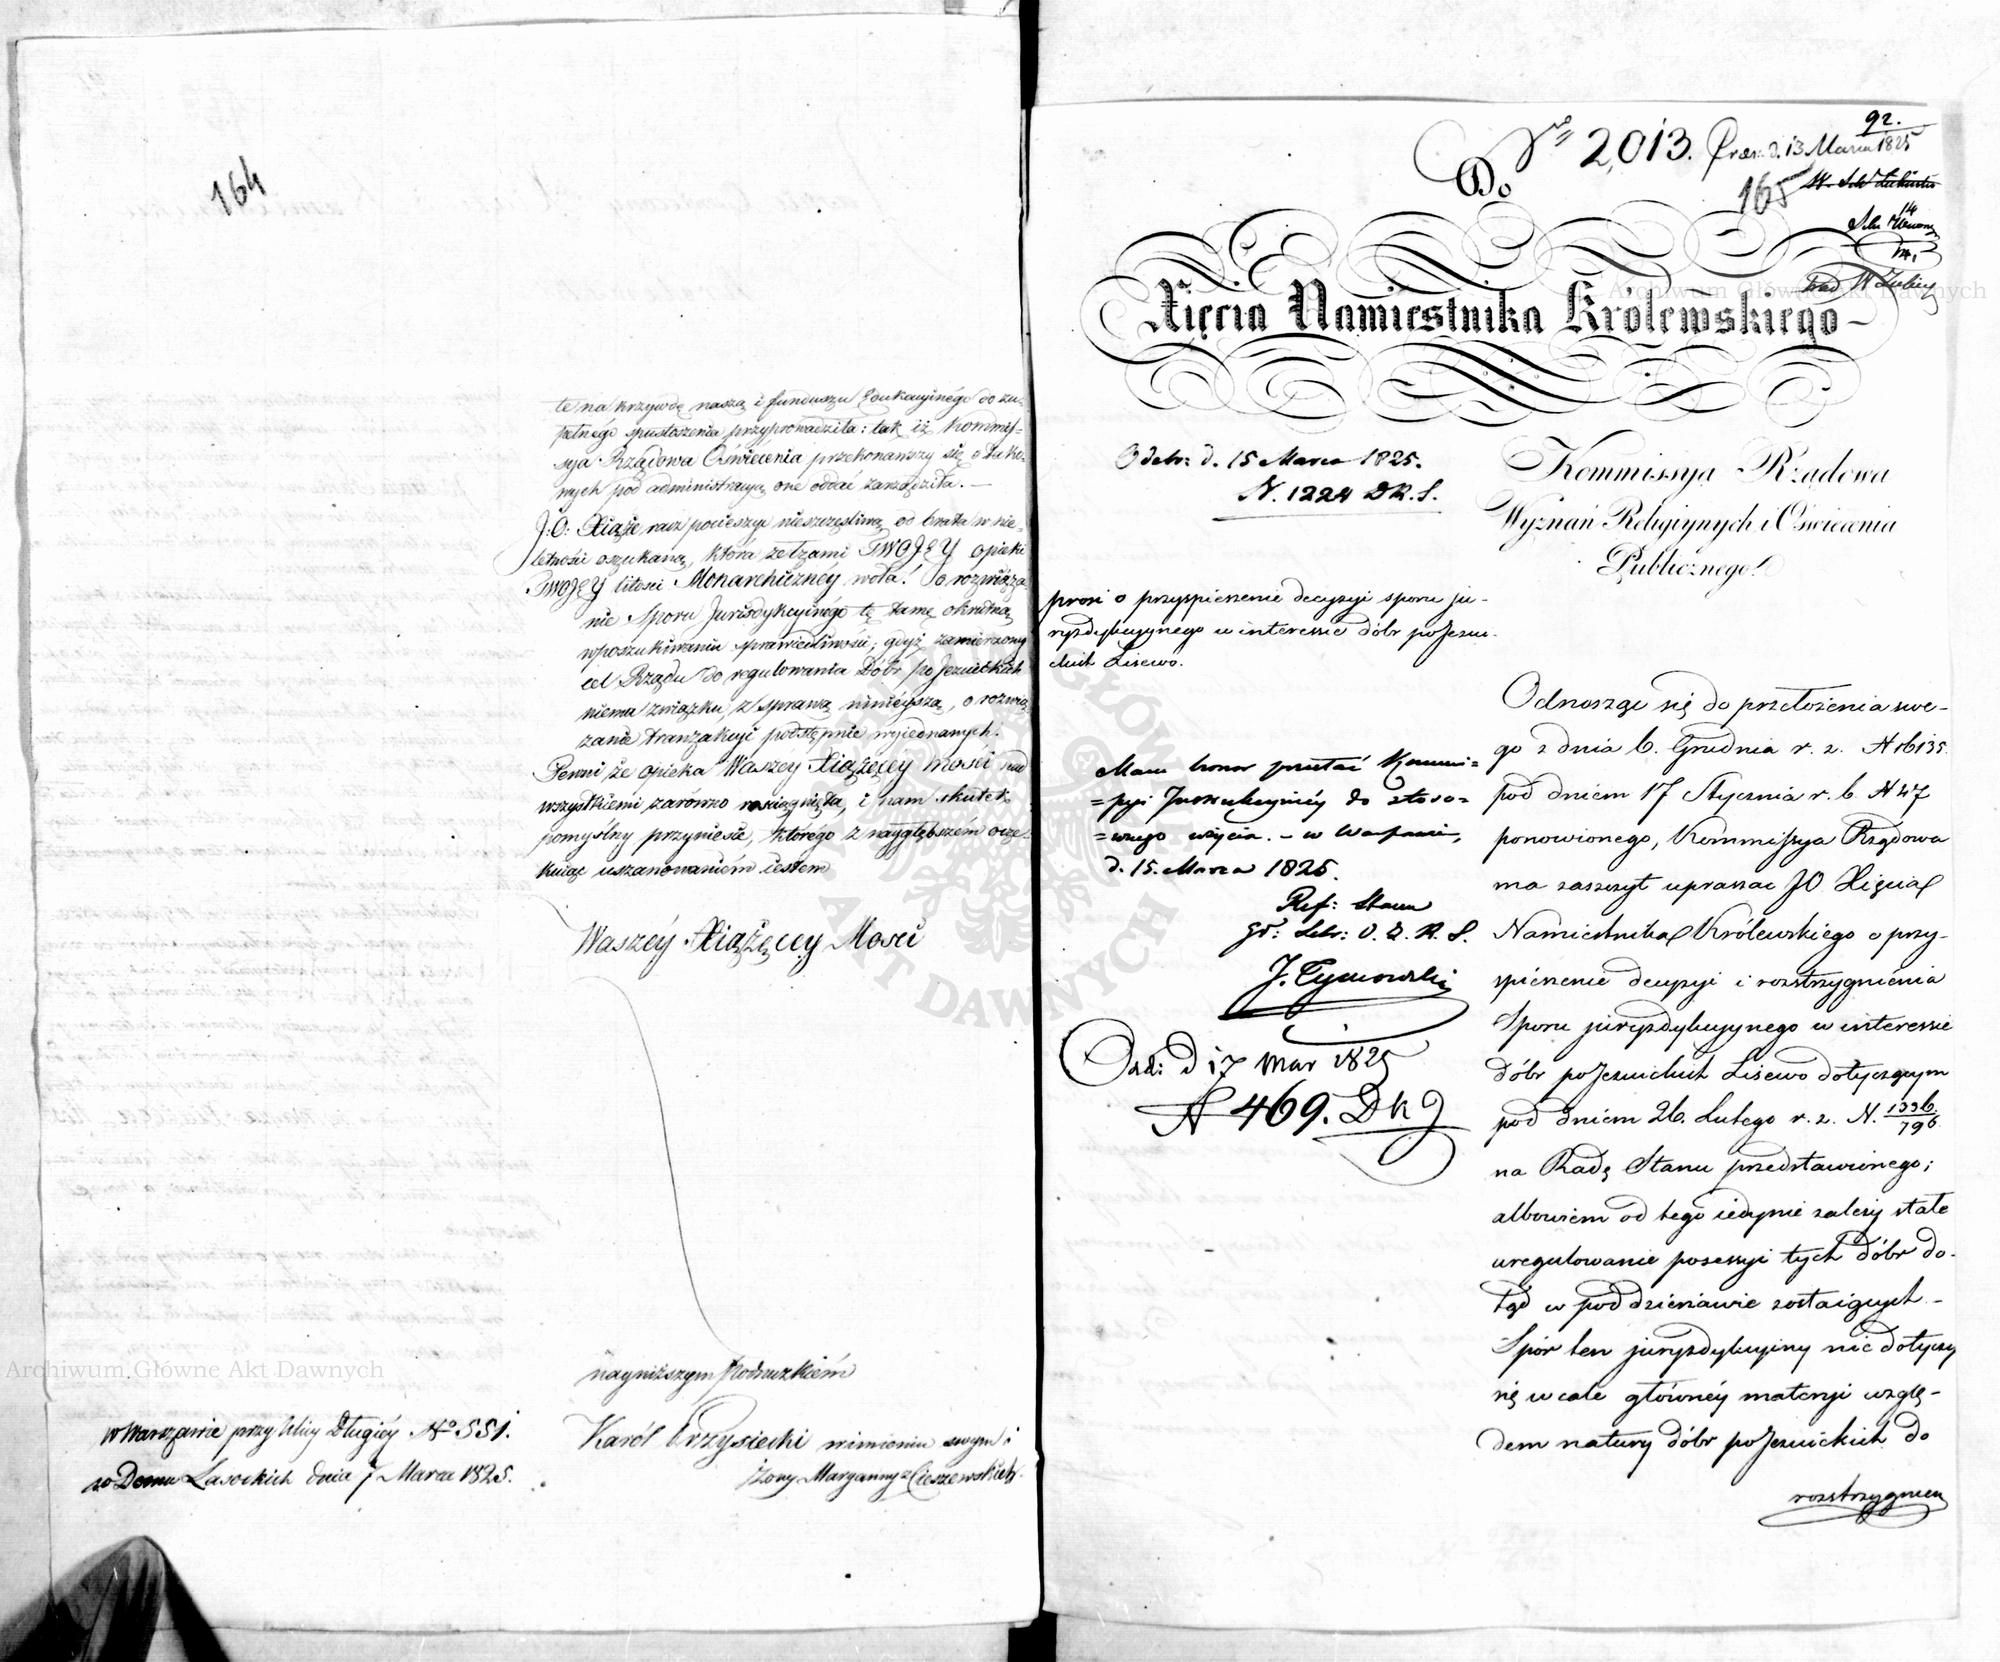 164
te na krzywdę naszą i funduszu Edukacyinégo do zu-
pełnego spustoszenia przyprowadziła: tak iż Kommis-
sya Rządowa Oświecenia przekonawszy się o
pod administracyą one oddać zarządziła. —
J: O: Xiąże racz pocieszyć nieszczęśliwą od brata w nie-
letności oszukaną, która ze łzami TWOJEY opieki
TWOJEY litości Monarchicznéy woła! o rozwiąza-
nie Sporu Jurisdykcyinégo tę tamę okrutną
w poszukiwaniu sprawiedliwości, gdyż zamierzony
cel Rządu do regulowania Dóbr po Jezuickich
niema związku, z sprawą ninieyszą, o rozwią
zanie tranzakcyi podstępnie wyjednanych.
Pewni że opieka Waszey Xiążęcéy Mości nad
wszystkiemi zarówno rosciągnięta, i nam skutek
pomyślny przyniesie, którego z naygłębszém ocze-
kuiąc uszanowaniém iestem
Waszéy Xiążęcey Mości
nayniższym Podnuzkiém
Karól Trzysiecki w imieniu swym i
żony Maryanny z Cieszewskich.
w Warszawie przy Ulicy Długiéy No 551.
w Domu Lasockich dnia 7 Marca 1825.
92.
No 2,013. Præs: d. 13 Marca 1825
165
14
Do
Xięcia Namiestnika Królewskiego
Odebr: d. 15 Marca 1825.
N. 1224 DR. S.
Kommissya Rządowa
Wyznań Religiynych i Oświecenia
Publicznego.
prosi o przyspieszenie decyzyi sporu ju-
ryzdykcyynego w interessie dóbr po Jezui-
ckich Lisewo.
Mam honor przesłać Kommi-
=syi Instrukcyinéy do stoso=
=wnego użycia. – w Warszawie,
d. 15. Marca 1825.
Ref: Stanu
J. Tymowski
Odd: d 17 Mar 1825
N 469. D K J
Odnosząc się do przełożenia swe-
go z dnia 6. Grudnia r. z. N 16135.
pod dniem 17 Stycznia r. b. N 47
ponowionego, Kommissya Rządowa
ma zaszczyt upraszać JO Xięcia
Namiestnika Królewskiego o przy-
spieszenie decyzyi i rozstrzygnienia
Sporu juryzdykcyynego w interessie
dóbr po Jezuickich Lisewo dotyczącym
pod dniem 26. Lutego r. z. N. 1336/796
na Radę Stanu przedstawionego;
albowiem od tego iedynie zależy stałe
uregulowanie possessyi tych dóbr do-
tąd w poddzierżawie zostaiących –
Spór ten juryzdykcyiny nic dotyczy
się wcale głównéy materyi wzglę-
dem natury dóbr po Jezuickich do
rozstrzygnien